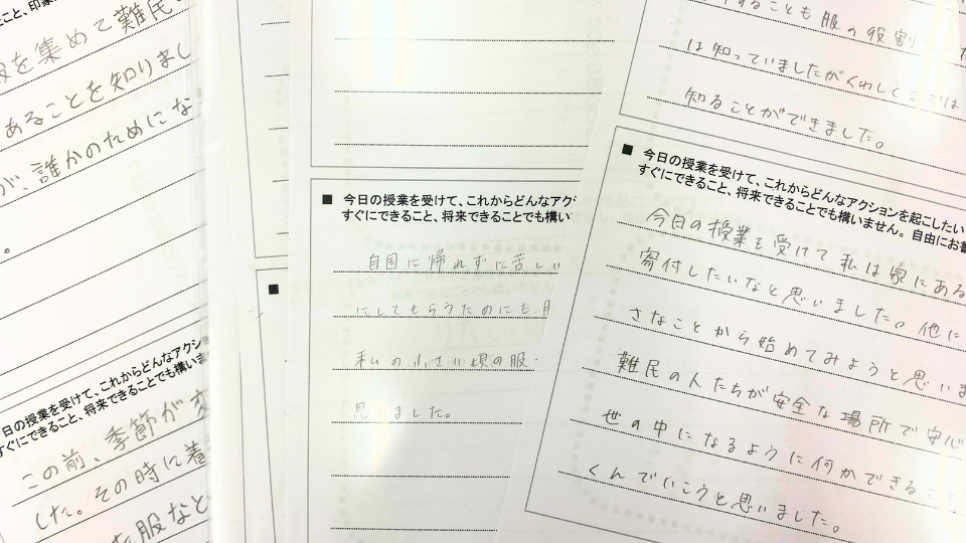 こと、印象
服を集めて難民
あることを知りまし
が、誰かのためにな
。
日の授業を受けて、これからどんなアクシ
ぐにできること、将来できることでも構いま
この前、季節が変
した。その時に着
服など
■
■ 今日の授業を受けて、これからどんなアク
すぐにできること、将来できることでも構い
自国に帰れずに苦しい
にしてもらうためにも
私の小さい頃の服
思いました。
することも服の役割
は知っていましたがくわしくまでは
知ることができました。
■ 今日の授業を受けて、これからどんなアクションを起こしたい
すぐにできること、将来できることでも構いません。自由にお書
今日の授業を受けて私は家にある
寄付したいなと思いました。他に
さなことから始めてみようと思いま
難民の人たちが安全な場所で安心
世の中になるように何かできること
くんでいこうと思いました。